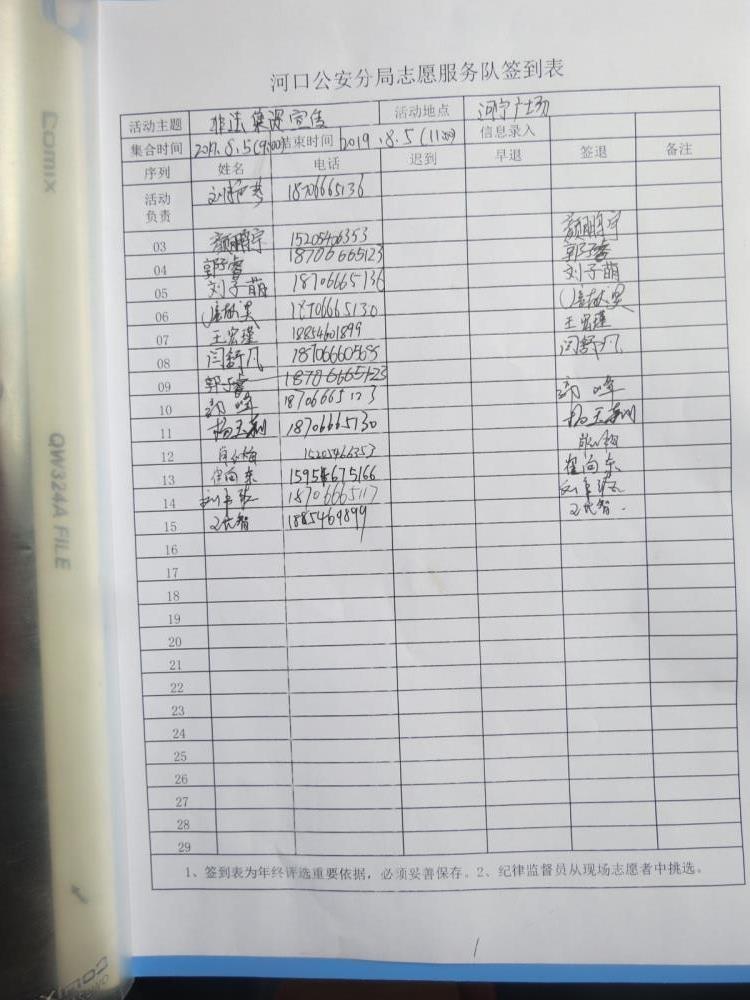 河口公安分局志愿服务队签到表
活动主题 非法集资宣传 活动地点 河宁广场
集合时间 2019.8.5(9:00) 结束时间 2019.8.5(11:00) 信息录入
序列 姓名 电话 迟到 早退 签退 备注
活动负责 18706665136
03 颜鹏宇 15205466353 颜鹏宇
04 郭子睿 18706665123 郭子睿
05 刘子萌 18706665136 刘子萌
06 18706665130
07 王宏瑾 18854601899 王宏瑾
08 闫舒凡 18706660565 闫舒凡
09 郭子睿 18706665123
10 18706665123
11 杨玉 18706665130 杨玉
12 15205466353
13 崔向东 15954675166 崔向东
14 18706665117
15 1885469899
16
17
18
19
20
21
22
23
24
25
26
27
28
29
1、签到表为年终评选重要依据，必须妥善保存。2、纪律监督员从现场志愿者中挑选。
1
comix
QW324A FILE